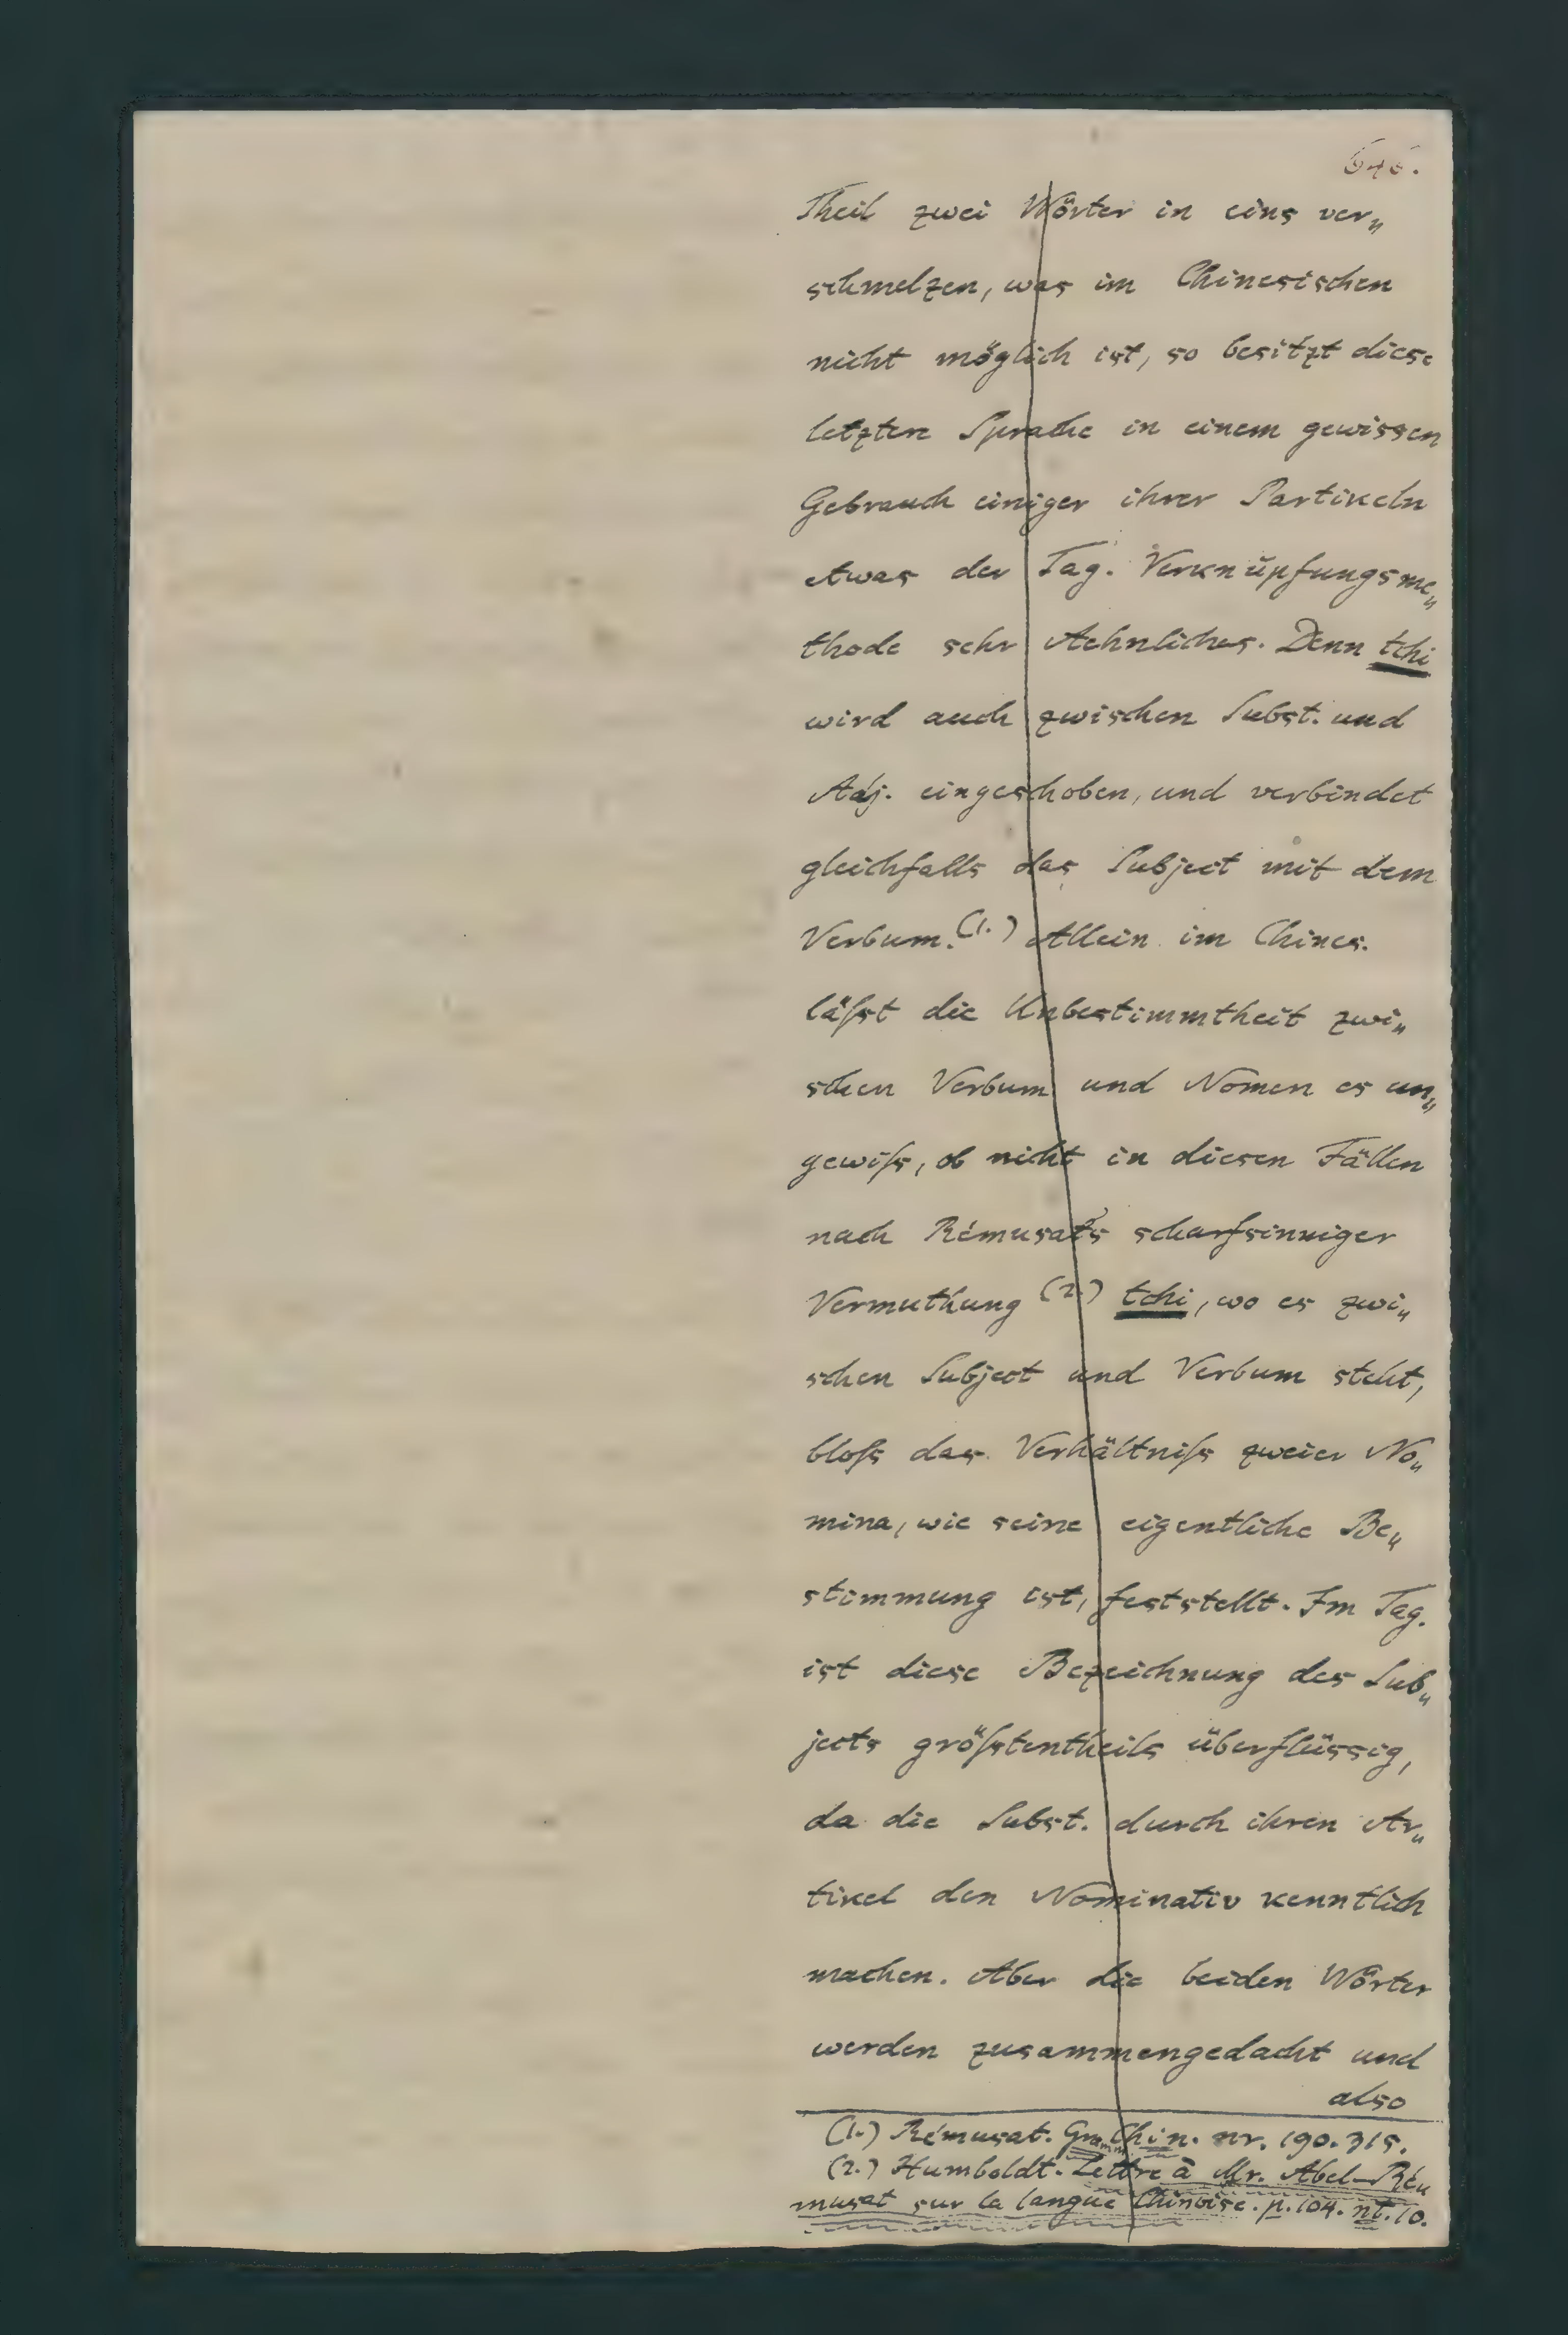 646.
Theil zwei Wörter in eins ver„
schmelzen, was im Chinesischen
nicht möglich ist, so besitzt diese
letztere Sprache in einem gewissen
Gebrauch einiger ihrer Partikeln
etwas der Tag. Verknüpfungsme„
thode sehr Aehnliches. Denn tchi
wird auch zwischen Subst. und
Adj. eingeschoben, und verbindet
gleichfalls das Subject mit dem
Verbum.(1.) Allein im Chines.
läſst die Unbestimmtheit zwi„
schen Verbum und Nomen es un„
gewiſs, ob nicht in diesen Fällen
nach Rémusat's scharfsinniger
Vermuthung (2.) tchi, wo es zwi„
schen Subject und Verbum steht,
bloſs das Verhältniſs zweier No„
mina, wie seine eigentliche Be„
stimmung ist, feststellt. Im Tag.
ist diese Bezeichnung des Sub„
jects gröſstentheils überflüssig,
da die Subst. durch ihren Ar„
tikel den Nominativ kenntlich
machen. Aber die beiden Wörter
werden zusammengedacht und
also
(1.) Rémusat. Gramm. Chin. nr. 190. 315.
(2.) Humboldt. Lettre à Mr. Abel-Ré„
musat sur la langue Chinoise. p. 104. nt. 10.